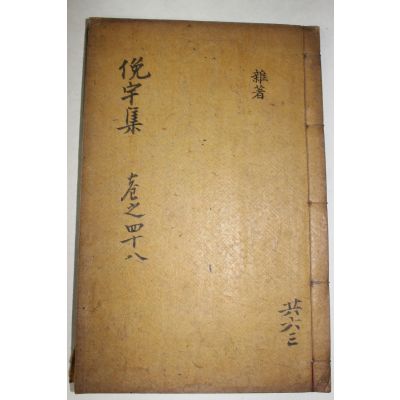 雜著
俛宇集 卷之四十八
共六三